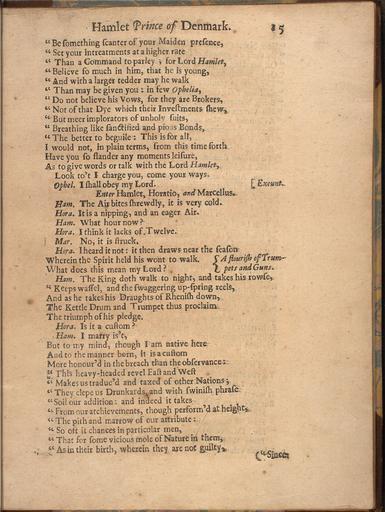 Hamlet Prince of Denmark. 15
“ Be something scanter of your Maiden presence,
“ Set your Intreatments at a higher rate
“ Than a Command to parley ; for Lord Hamlet,
“ Believe so much in him, that he is young,
“ And with a larger tedder may he walk
“ Than may be given you : in few Ophelia,
“ Do not believe his Vows, for they are Brokers,
“ Not of that Dye which their Investments shew,
“ But meer implorators of unholy suits,
“ Breathing like sanctified and pious Bonds,
“ The better to beguile : This is for all,
I would not, in plain terms, from this time forth
Have you so slander any moments leisure,
As to give words or talk with the Lord Hamlet,
Look to't I charge you, come your ways.
Ophel. I shall obey my Lord. [ Exeunt.
Enter Hamlet, Horatio, and Marcellus.
Ham. The Air bites shrewdly, it is very cold.
Hora. It is a nipping, and an eager Air.
Ham. What hour now?
Hora. I think it lacks of Twelve.
Mar. No, it is struck.
Hora. I heard it not : it then draws near the season
Wherein the Spirit held his wont to walk. { A flourish of Trum-
What does this mean my Lord? { pets and Guns.
Ham. The King doth walk to night, and takes his rowse,
“ Keeps wassel, and the swaggering up-spring reels,
And as he takes his Draughts of Rhenish down,
The Kettle Drum and Trumpet thus proclaim
The triumph of his pledge.
Hora. Is it a custom?
Ham. I marry is't,
But to my mind, though I am native here
And to the manner born, it is a custom
More honour'd in the breach than the observance :
“ This heavy-headed revel East and West
“ Makes us traduc'd and taxed of other Nations ;
“ They clepe us Drunkards, and with swinish phrase
“ Soil our addition : and indeed it takes
“ From our atchievements, though perform'd at height,
“ The pith and marrow of our attribute :
“ So oft it chances in particular men,
“ That for some vicious mole of Nature in them,
“ As in their birth, wherein they are not guilty,
(“ Since